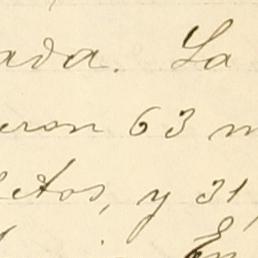 ada. La
eron 63 m
etos, y 31,
En